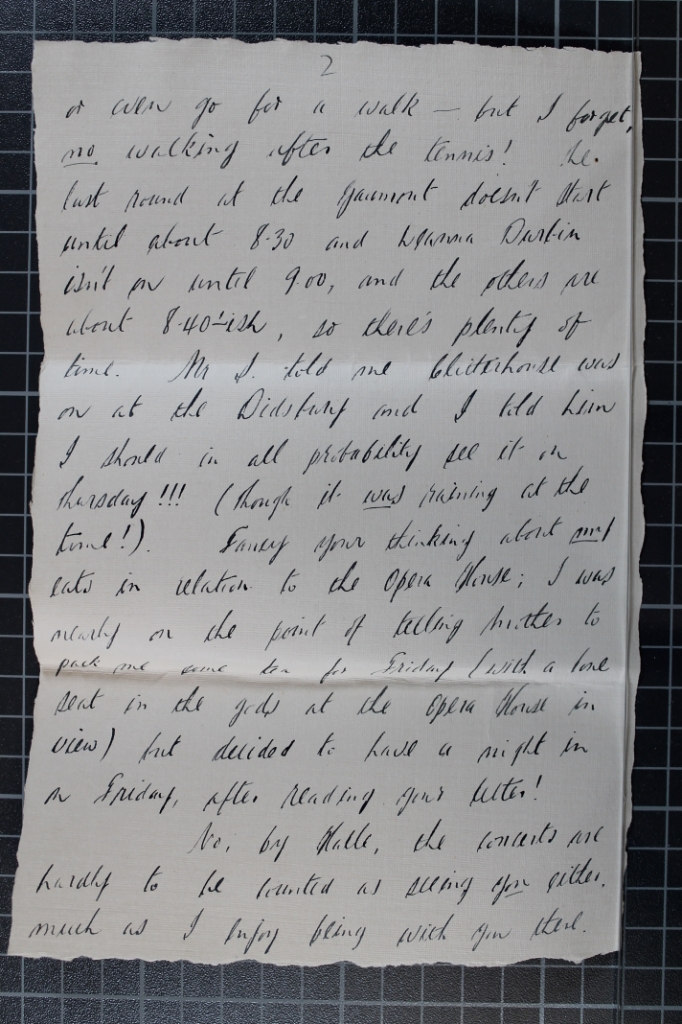 2
or even go for a walk — but I forget,
no walking after the tennis! The
last round at the Gaumont doesn't start
until about 8.30 and Deanna Durbin
isn't on until 9.00, and the others are
about 8.40'-ish, so there's plenty of
time. Mr S. told me Clitterhouse was
on at the Didsbury and I told him
I should in all probability see it on
Thursday!!! (though it was raining at the
time!). Fancy your thinking about my
eats in relation to the Opera House; I was
nearly on the point of telling Mother to
pack me some tea for Friday (with a lone
seat in the gods at the Opera House in
view) but decided to have a night in
on Friday, after reading your letter!
No, by Halle, the concerts are
hardly to be counted as seeing you either,
much as I enjoy being with you there.